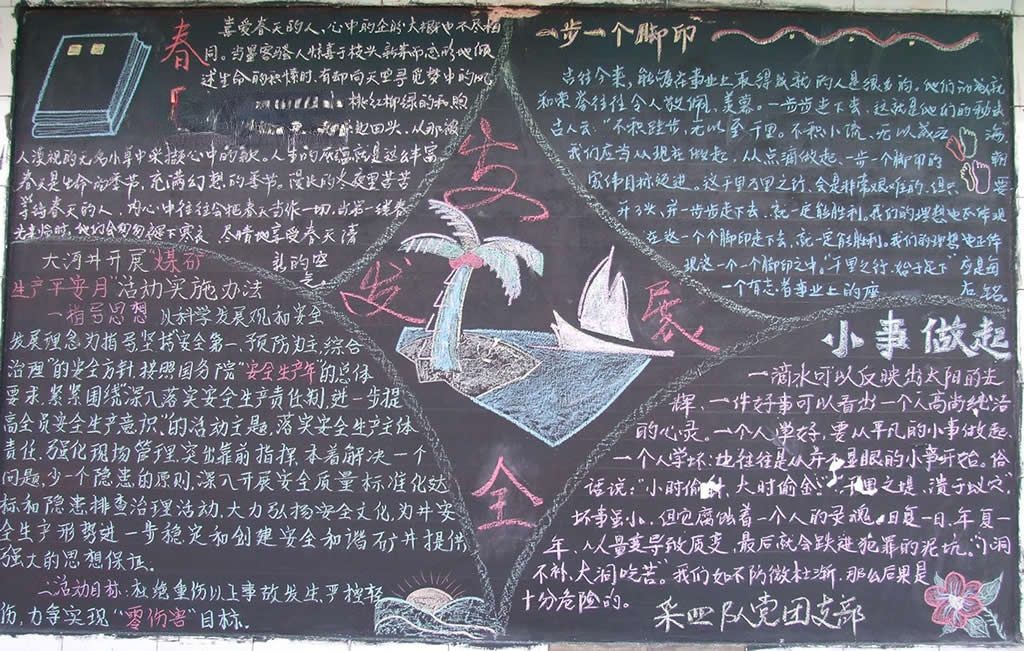 春
喜爱春天的人,心中的
桃红柳绿的
春天是生命的季节,充满幻想的季节。漫长的冬夜里苦苦
等待春天的人,内心中往往会把春天当作一切,当第一线春
尽情地享受春天清
乳的空
气。
大河井开展“煤矿
生产平安月”活动实施办法
一.指导思想 以科学发展观和安全
发展理念为指导,坚持“安全第一,预防为主,综合
治理”的安全方针,按照国务院“安全生产年”的总体
要求,紧紧围绕“深入落实安全生产责任制,进一步提
高全员安全生产意识”的活动主题,落实安全生产主体
责任,强化现场管理,突出靠前指挥,本着解决一个
问题,少一个隐患的原则,深入开展安全质量标准化达
标和隐患排查治理活动,大力弘扬安全文化,为井安
全生产形势进一步稳定和创建安全和谐矿井提供
强大的思想保证。
二.活动目标:杜绝重伤以上事故发生,严控轻
伤,力争实现“零伤害”目标.
安
发
展
全
一步一个脚印
古往今来,能够在事业上取得成就的人是很多的。他们的成就
和荣誉往往令人敬佩、羡慕。一步步走下去,这就是他们的秘诀
古人云:“不积跬步,无以至千里。不积小流,无以成江海。
我们应当从现在做起,从点滴做起,一步一个脚印的朝
宏伟目标迈进。这千里万里之行,会是非常艰难的,但只要
开了头,并一步步走下去,就一定能胜利。我们的理想也正体现
在这一个个脚印走下去,就一定能胜利。我们的理想也正体
现这一个一个脚印之中。“千里之行,始于足下”应是每
一个有志者事业上的座右铭。
小事做起
一滴水可以反映出太阳的光
辉,一件好事可以看出一个人高尚纯洁
的心灵。一个人学好,要从平凡的小事做起,
一个人学坏:也往往是从并不显眼的小事开始。俗
话说:“小时偷针,大时偷金”千里之堤,溃于蚁穴,
坏事虽小,但它腐蚀着一个人的灵魂,日复一日,年复一
年,从量变导致质变,最后就会跌进犯罪的泥坑,“小洞
不补,大洞吃苦”。我们如不防微杜渐,那么后果是
十分危险的。
采四队党团支部